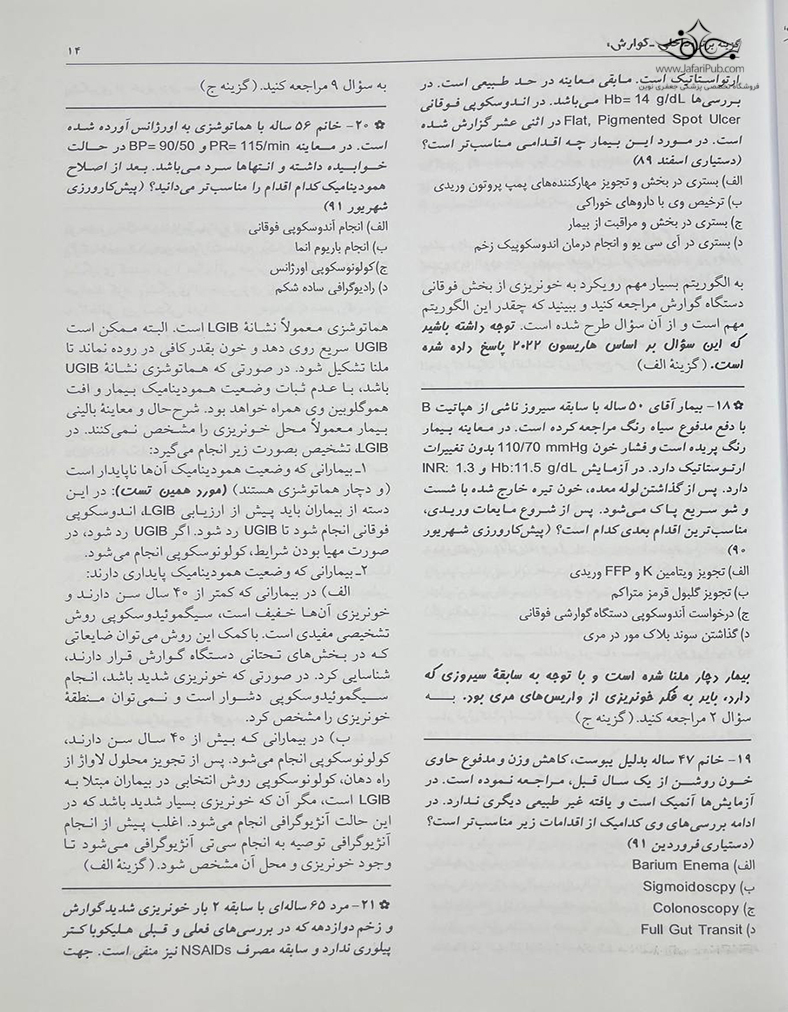 ۱۴
گزینه برتر داخلی ـ گوارش،
www.JafariPub.com
فروشگاه تخصصی پزشکی جعفری نوین
ارتواستاتیک است. مابقی معاینه در حد طبیعی است. در
بررسی‌ها Hb= 14 g/dL می‌باشد. در اندوسکوپی فوقانی
Flat, Pigmented Spot Ulcer در اثنی عشر گزارش شده
است. در مورد این بیمار چه اقدامی مناسب‌تر است؟
(دستیاری اسفند ۸۹)
الف) بستری در بخش و تجویز مهارکننده‌های پمپ پروتون وریدی
ب) ترخیص وی با داروهای خوراکی
ج) بستری در بخش و مراقبت از بیمار
د) بستری در آی سی یو و انجام درمان اندوسکوپیک زخم
به الگوریتم بسیار مهم رویکرد به خونریزی از بخش فوقانی
دستگاه گوارش مراجعه کنید و ببینید که چقدر این الگوریتم
مهم است و از آن سؤال طرح شده است. توجه داشته باشید
که این سؤال بر اساس هاریسون ۲۰۲۲ پاسخ داده شده
است. (گزینهٔ الف)
✿ ۱۸- بیمار آقای ۵۰ ساله با سابقه سیروز ناشی از هپاتیت B
با دفع مدفوع سیاه رنگ مراجعه کرده است. در معاینه بیمار
رنگ پریده است و فشار خون 110/70 mmHg بدون تغییرات
ارتوستاتیک دارد. در آزمایش Hb:11.5 g/dL و INR: 1.3
دارد. پس از گذاشتن لوله معده، خون تیره خارج شده با شست
و شو سریع پاک می‌شود. پس از شروع مایعات وریدی،
مناسب‌ترین اقدام بعدی کدام است؟ (پیش‌کارورزی شهریور
۹۰)
الف) تجویز ویتامین K و FFP وریدی
ب) تجویز گلبول قرمز متراکم
ج) درخواست آندوسکوپی دستگاه گوارشی فوقانی
د) گذاشتن سوند بلاک مور در مری
بیمار دچار ملنا شده است و با توجه به سابقهٔ سیروزی که
دارد، باید به فکر خونریزی از واریس‌های مری بود. به
سؤال ۲ مراجعه کنید. (گزینه ج)
۱۹- خانم ۴۷ ساله بدلیل یبوست، کاهش وزن و مدفوع حاوی
خون روشن از یک سال قبل، مراجعه نموده است. در
آزمایش‌ها آنمیک است و یافته غیر طبیعی دیگری ندارد. در
ادامه بررسی‌های وی کدامیک از اقدامات زیر مناسب‌تر است؟
(دستیاری فروردین ۹۱)
الف) Barium Enema
ب) Sigmoidoscpy
ج) Colonoscopy
د) Full Gut Transit
به سؤال ۹ مراجعه کنید. (گزینه ج)
✿ ۲۰- خانم ۵۶ ساله با هماتوشزی به اورژانس آورده شده
است. در معاینه PR= 115/min و BP= 90/50 در حالت
خوابیده داشته و انتهاها سرد می‌باشد. بعد از اصلاح
همودینامیک کدام اقدام را مناسب‌تر می‌دانید؟ (پیش‌کارورزی
شهریور ۹۱)
الف) انجام آندوسکوپی فوقانی
ب) انجام باریوم انما
ج) کولونوسکوپی اورژانس
د) رادیوگرافی ساده شکم
هماتوشزی معمولاً نشانهٔ LGIB است. البته ممکن است
UGIB سریع روی دهد و خون بقدر کافی در روده نماند تا
ملنا تشکیل شود. در صورتی که هماتوشزی نشانهٔ UGIB
باشد، با عدم ثبات وضعیت همودینامیک بیمار و افت
هموگلوبین وی همراه خواهد بود. شرح‌حال و معاینهٔ بالینی
بیمار معمولاً محل خونریزی را مشخص نمی‌کنند. در
LGIB، تشخیص بصورت زیر انجام می‌گیرد:
۱ـ بیمارانی که وضعیت همودینامیک آن‌ها ناپایدار است
(و دچار هماتوشزی هستند) (مورد همین تست): در این
دسته از بیماران باید پیش از ارزیابی LGIB، اندوسکوپی
فوقانی انجام شود تا UGIB رد شود. اگر UGIB رد شود، در
صورت مهیا بودن شرایط، کولونوسکوپی انجام می‌شود.
۲ـ بیمارانی که وضعیت همودینامیک پایداری دارند:
الف) در بیمارانی که کمتر از ۴۰ سال سن دارند و
خونریزی آن‌ها خفیف است، سیگموئیدوسکوپی روش
تشخیصی مفیدی است. با کمک این روش می‌توان ضایعاتی
که در بخش‌های تحتانی دستگاه گوارش قرار دارند،
شناسایی کرد. در صورتی که خونریزی شدید باشد، انجام
سیگموئیدوسکوپی دشوار است و نمی‌توان منطقهٔ
خونریزی را مشخص کرد.
ب) در بیمارانی که بیش از ۴۰ سال سن دارند،
کولونوسکوپی انجام می‌شود. پس از تجویز محلول لاواژ از
راه دهان، کولونوسکوپی روش انتخابی در بیماران مبتلا به
LGIB است، مگر آن که خونریزی بسیار شدید باشد که در
این حالت آنژیوگرافی انجام می‌شود. اغلب پیش از انجام
آنژیوگرافی توصیه به انجام سی‌تی آنژیوگرافی می‌شود تا
وجود خونریزی و محل آن مشخص شود. (گزینهٔ الف)
✿ ۲۱- مرد ۶۵ ساله‌ای با سابقه ۲ بار خونریزی شدید گوارش
و زخم دوازدهه که در بررسی‌های فعلی و قبلی هلیکوباکتر
پیلوری ندارد و سابقه مصرف NSAIDs نیز منفی است. جهت